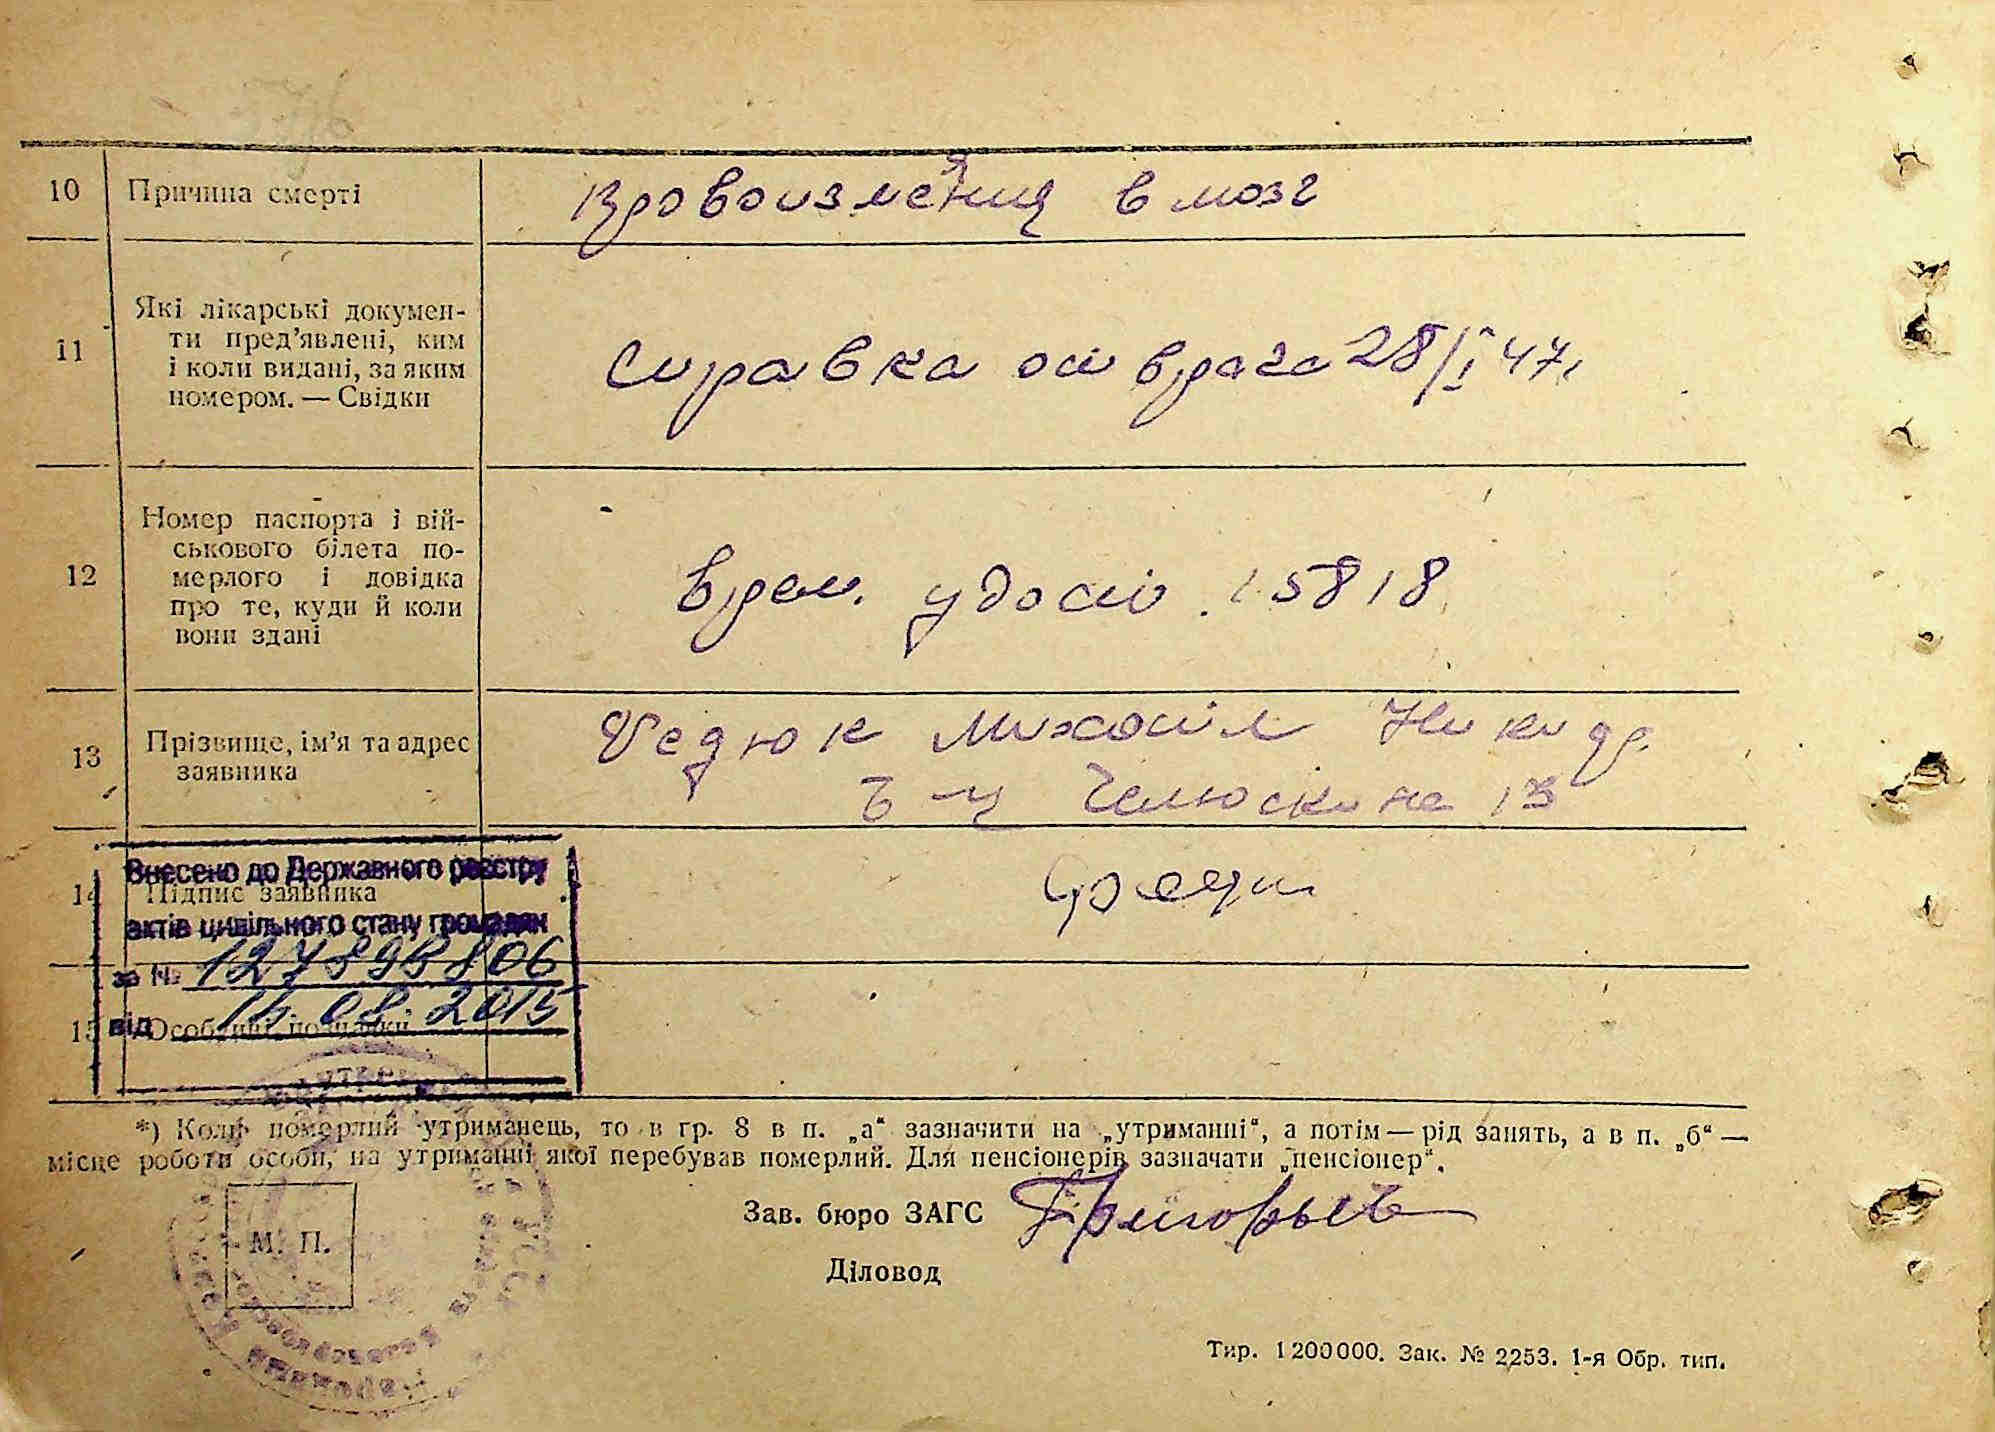 10 Причина смерті Кровоизмения в мозг
11 Які лікарські докумен-
ти пред'явлені, ким
і коли видані, за яким
номером. — Свідки
Справка от врача 28/I 47.
12 Номер паспорта і вій-
ськового білета по-
мерлого і довідка
про те, куди й коли
вони здані
врем. удост. 15818
13 Прізвище, ім'я та адрес
заявника
Федюк Михаил Никидр.
Челюскине 13
14 Підпис заявника
15 Особливі позначки
Внесено до Державного реєстру
актів цивільного стану громадян
за №
від 08.2015
*) Коли померлий утриманець, то в гр. 8 в п. „а“ зазначити на „утриманні“, а потім — рід занять, а в п. „б“ —
місце роботи особи, на утриманні якої перебував померлий. Для пенсіонерів зазначати „пенсіонер“.
Зав. бюро ЗАГС
М. П.
Діловод
Тир. 1200000. Зак. № 2253. 1-я Обр. тип.